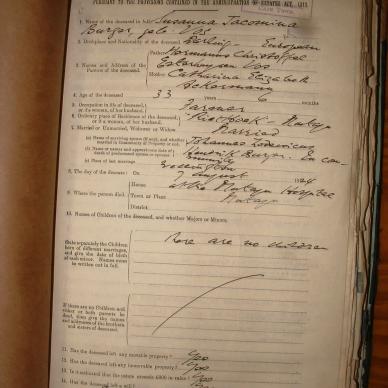 PURSUANT TO THE PROVISIONS CONTAINED IN THE ADMINISTRATION OF ESTATES ACT, 1913.
1. Name of the deceased in full Susanna Jacomina
Burger gebo. Vos
2. Birthplace and Nationality of the deceased Darling - European
Father Hermanus Christoffel
3. Names and Address of the Parents of the deceased. Vos
Mother Catharina Elizabeth
Ackermann
4. Age of the deceased 33 years 6 months
5. Occupation in life of the deceased, or if a woman, of her husband. Farmer
6. Ordinary place of Residence of the deceased, or if a woman, of her husband.
7. Married or Unmarried, Widower or Widow Married
(a) Name of surviving spouse (if any), and whether married in Community of Property or not. Johannes Lodewicus
Hendrik Burger. In com-
(b) Name or names and approximate date of death of predeceased spouse or spouses munity
(c) Place of last marriage
8. The day of the decease: On 7 August 1924
9. Where the person died. House At the Hospital
Town or Place
District
10. Names of Children of the deceased, and whether Majors or Minors.
State separately the Children born of different marriages, and give the date of birth of each minor. Names must be written out in full. There are no children
If there are no Children and either or both parents be dead, then give the names and addresses of the brothers and sisters of deceased.
11. Has the deceased left any movable property? Yes
12. Has the deceased left any immovable property? Yes
13. Is it estimated that the estate exceeds £300 in value? Yes
14. Has the deceased left a will?